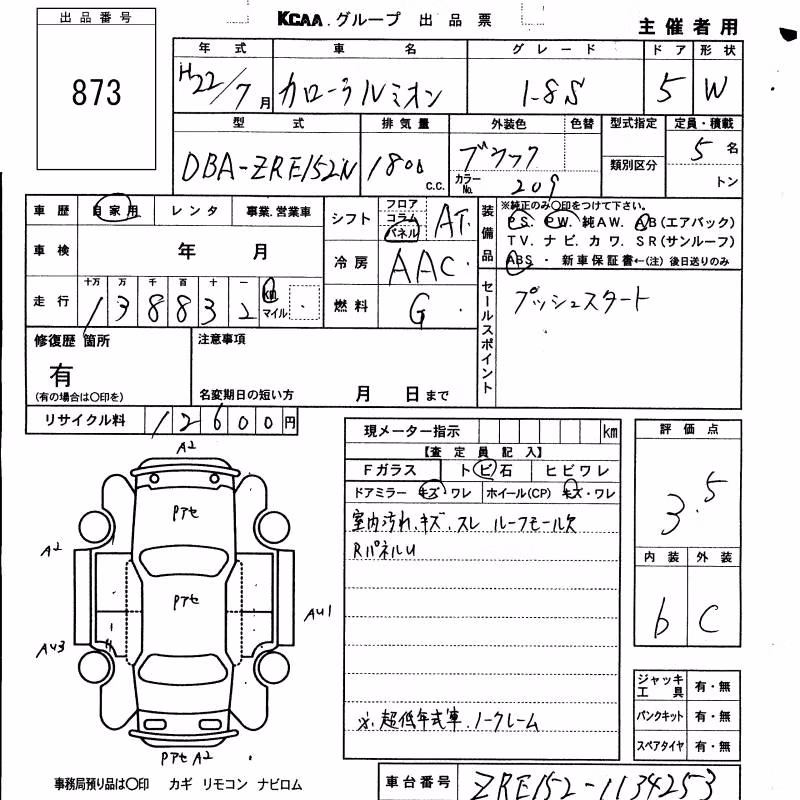 出品番号
873
KCAA.グループ 出品票
主催者用
年式 車名 グレード ドア 形状
H22/7月 カローラルミオン 1.8S 5 W
型式 排気量 外装色 色替 型式指定 定員・積載
DBA-ZRE152N 1800 C.C. ブラック カラーNo. 209 類別区分 5名 トン
車歴 自家用 レンタ 事業.営業車
車検 年 月
走行 十万 万 千 百 十 一
138832 km マイル
シフト フロア コラム パネル AT
冷房 AAC
燃料 G
装備品
※純正のみ〇印をつけて下さい。
PS. PW. 純AW. AB(エアバック)
TV. ナビ. カワ. SR(サンルーフ)
ABS ・ 新車保証書←(注) 後日送りのみ
セールスポイント
プッシュスタート
修復歴 箇所
有
(有の場合は〇印を)
注意事項
名変期日の短い方 月 日まで
リサイクル料 12600円
現メーター指示 km
【査定員記入】
Fガラス トビ石 ヒビワレ
ドアミラー キズ・ワレ ホイール(CP) キズ・ワレ
室内汚れ.キズ.スレ ルーフモール欠
RパネルU
※.超低年式車.ノークレーム
評価点
3.5
内装 外装
b C
A2
Pアセ
A2
Pアセ
AU1
AU3
PアセA2
ジャッキ工具 有・無
パンクキット 有・無
スペアタイヤ 有・無
事務局預り品は〇印 カギ リモコン ナビロム
車台番号 ZRE152-1134253